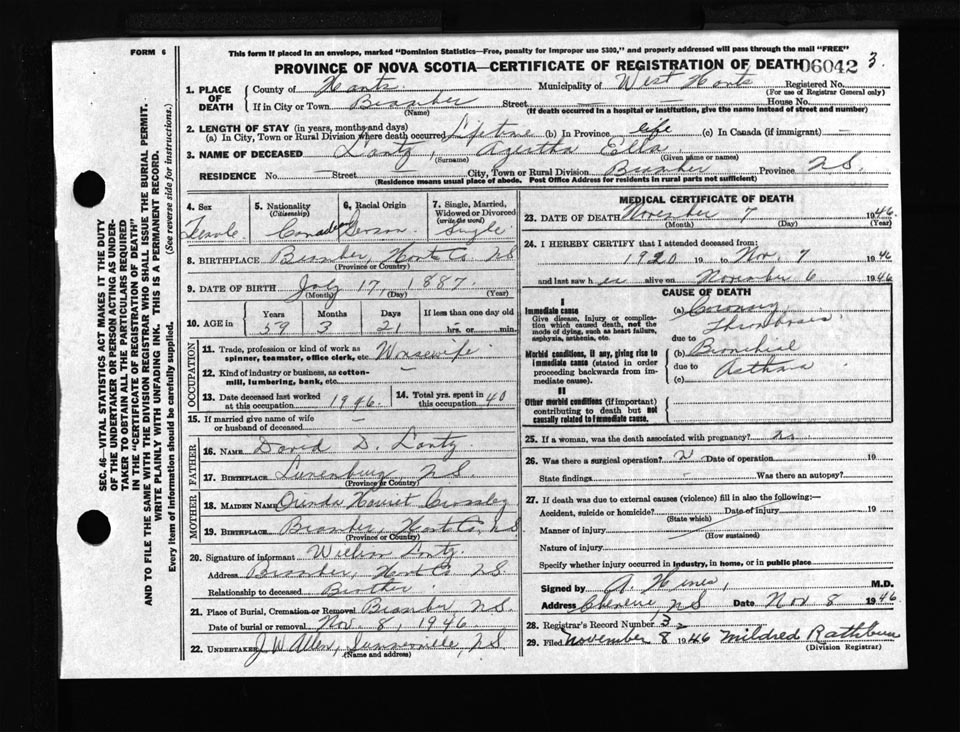 FORM 6
This form if placed in an envelope, marked "Dominion Statistics—Free, penalty for improper use $300," and properly addressed will pass through the mail "FREE"
PROVINCE OF NOVA SCOTIA—CERTIFICATE OF REGISTRATION OF DEATH 06042 3
SEC. 46—VITAL STATISTICS ACT MAKES IT THE DUTY
OF THE UNDERTAKER OR PERSON ACTING AS UNDER-
TAKER TO OBTAIN ALL THE PARTICULARS REQUIRED
IN THE "CERTIFICATE OF REGISTRATION OF DEATH"
AND TO FILE THE SAME WITH THE DIVISION REGISTRAR WHO SHALL ISSUE THE BURIAL PERMIT.
WRITE PLAINLY WITH UNFADING INK. THIS IS A PERMANENT RECORD.
Every item of information should be carefully supplied. (See reverse side for instructions.)
1. PLACE OF DEATH
County of Hants Municipality of West Hants Registered No.
(For use of Registrar General only)
If in City or Town Bramber Street — House No. —
(Name) (If death occurred in a hospital or institution, give the name instead of street and number)
2. LENGTH OF STAY (in years, months and days)
(a) In City, Town or Rural Division where death occurred Lifetime (b) In Province life (c) In Canada (if immigrant) —
3. NAME OF DECEASED Lantz, Agertha Ella
(Surname) (Given name or names)
RESIDENCE No. — Street — City, Town or Rural Division Bramber Province N.S.
(Residence means usual place of abode. Post Office Address for residents in rural parts not sufficient)
4. Sex
Female
5. Nationality
(Citizenship)
Canadian
6. Racial Origin
German
7. Single, Married, Widowed or Divorced
(write the word)
Single
8. BIRTHPLACE Bramber, Hants Co NS
(Province or Country)
9. DATE OF BIRTH July 17, 1887
(Month) (Day) (Year)
10. AGE in
Years Months Days If less than one day old
59 3 21 hrs. or min.
OCCUPATION
11. Trade, profession or kind of work as
spinner, teamster, office clerk, etc. Housewife
12. Kind of industry or business, as cotton-
mill, lumbering, bank, etc. —
13. Date deceased last worked
at this occupation 1946.
14. Total yrs. spent in
this occupation 40
15. If married give name of wife
or husband of deceased —
FATHER
16. NAME David D. Lantz
17. BIRTHPLACE Lunenburg NS
(Province or Country)
MOTHER
18. MAIDEN NAME Orinda Harriet Crossley
19. BIRTHPLACE Bramber, Hants Co, NS
(Province or Country)
20. Signature of informant William Lantz
Address Bramber, Hants Co NS
Relationship to deceased Brother
21. Place of Burial, Cremation or Removal Bramber NS.
Date of burial or removal Nov. 8, 1946
22. UNDERTAKER J W Allen, NS
(Name and address)
MEDICAL CERTIFICATE OF DEATH
23. DATE OF DEATH November 7 1946
(Month) (Day) (Year)
24. I HEREBY CERTIFY that I attended deceased from:
1920 19 to Nov 7 1946
and last saw h er alive on November 6 1946
CAUSE OF DEATH
I
Immediate cause
Give disease, injury or complica-
tion which caused death, not the
mode of dying, such as heart failure,
asphyxia, asthenia, etc.
(a) Coronary
Thrombosis
due to
Morbid conditions, if any, giving rise to
immediate cause (stated in order
proceeding backwards from im-
mediate cause).
(b) Bronchial
due to Asthma
(c)
II
Other morbid conditions (if important)
contributing to death but not
causally related to immediate cause.
25. If a woman, was the death associated with pregnancy? no
26. Was there a surgical operation? N Date of operation 19
State findings Was there an autopsy?
27. If death was due to external causes (violence) fill in also the following:
Accident, suicide or homicide? Date of injury 19
(State which)
Manner of injury
(How sustained)
Nature of injury
Specify whether injury occurred in industry, in home, or in public place
Signed by A Hines, M.D.
Address Cheverie NS Date Nov 8 1946
28. Registrar's Record Number 32
29. Filed November 8 1946 Mildred Rathburn
(Division Registrar)